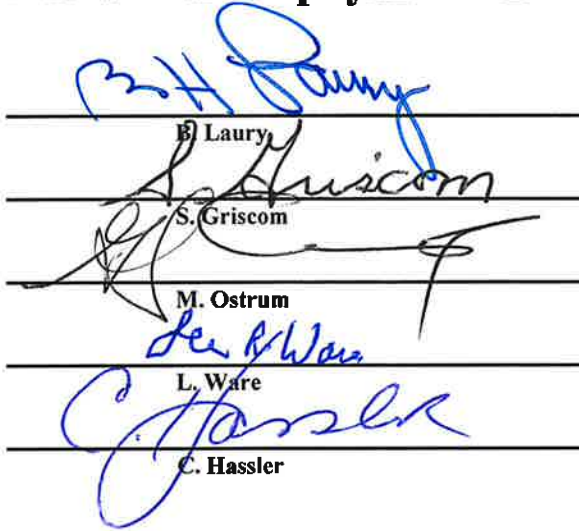 B H Laury
B. Laury
S Griscom
S. Griscom
M. Ostrum
Lee R Ware
L. Ware
C. Hassler
C. Hassler